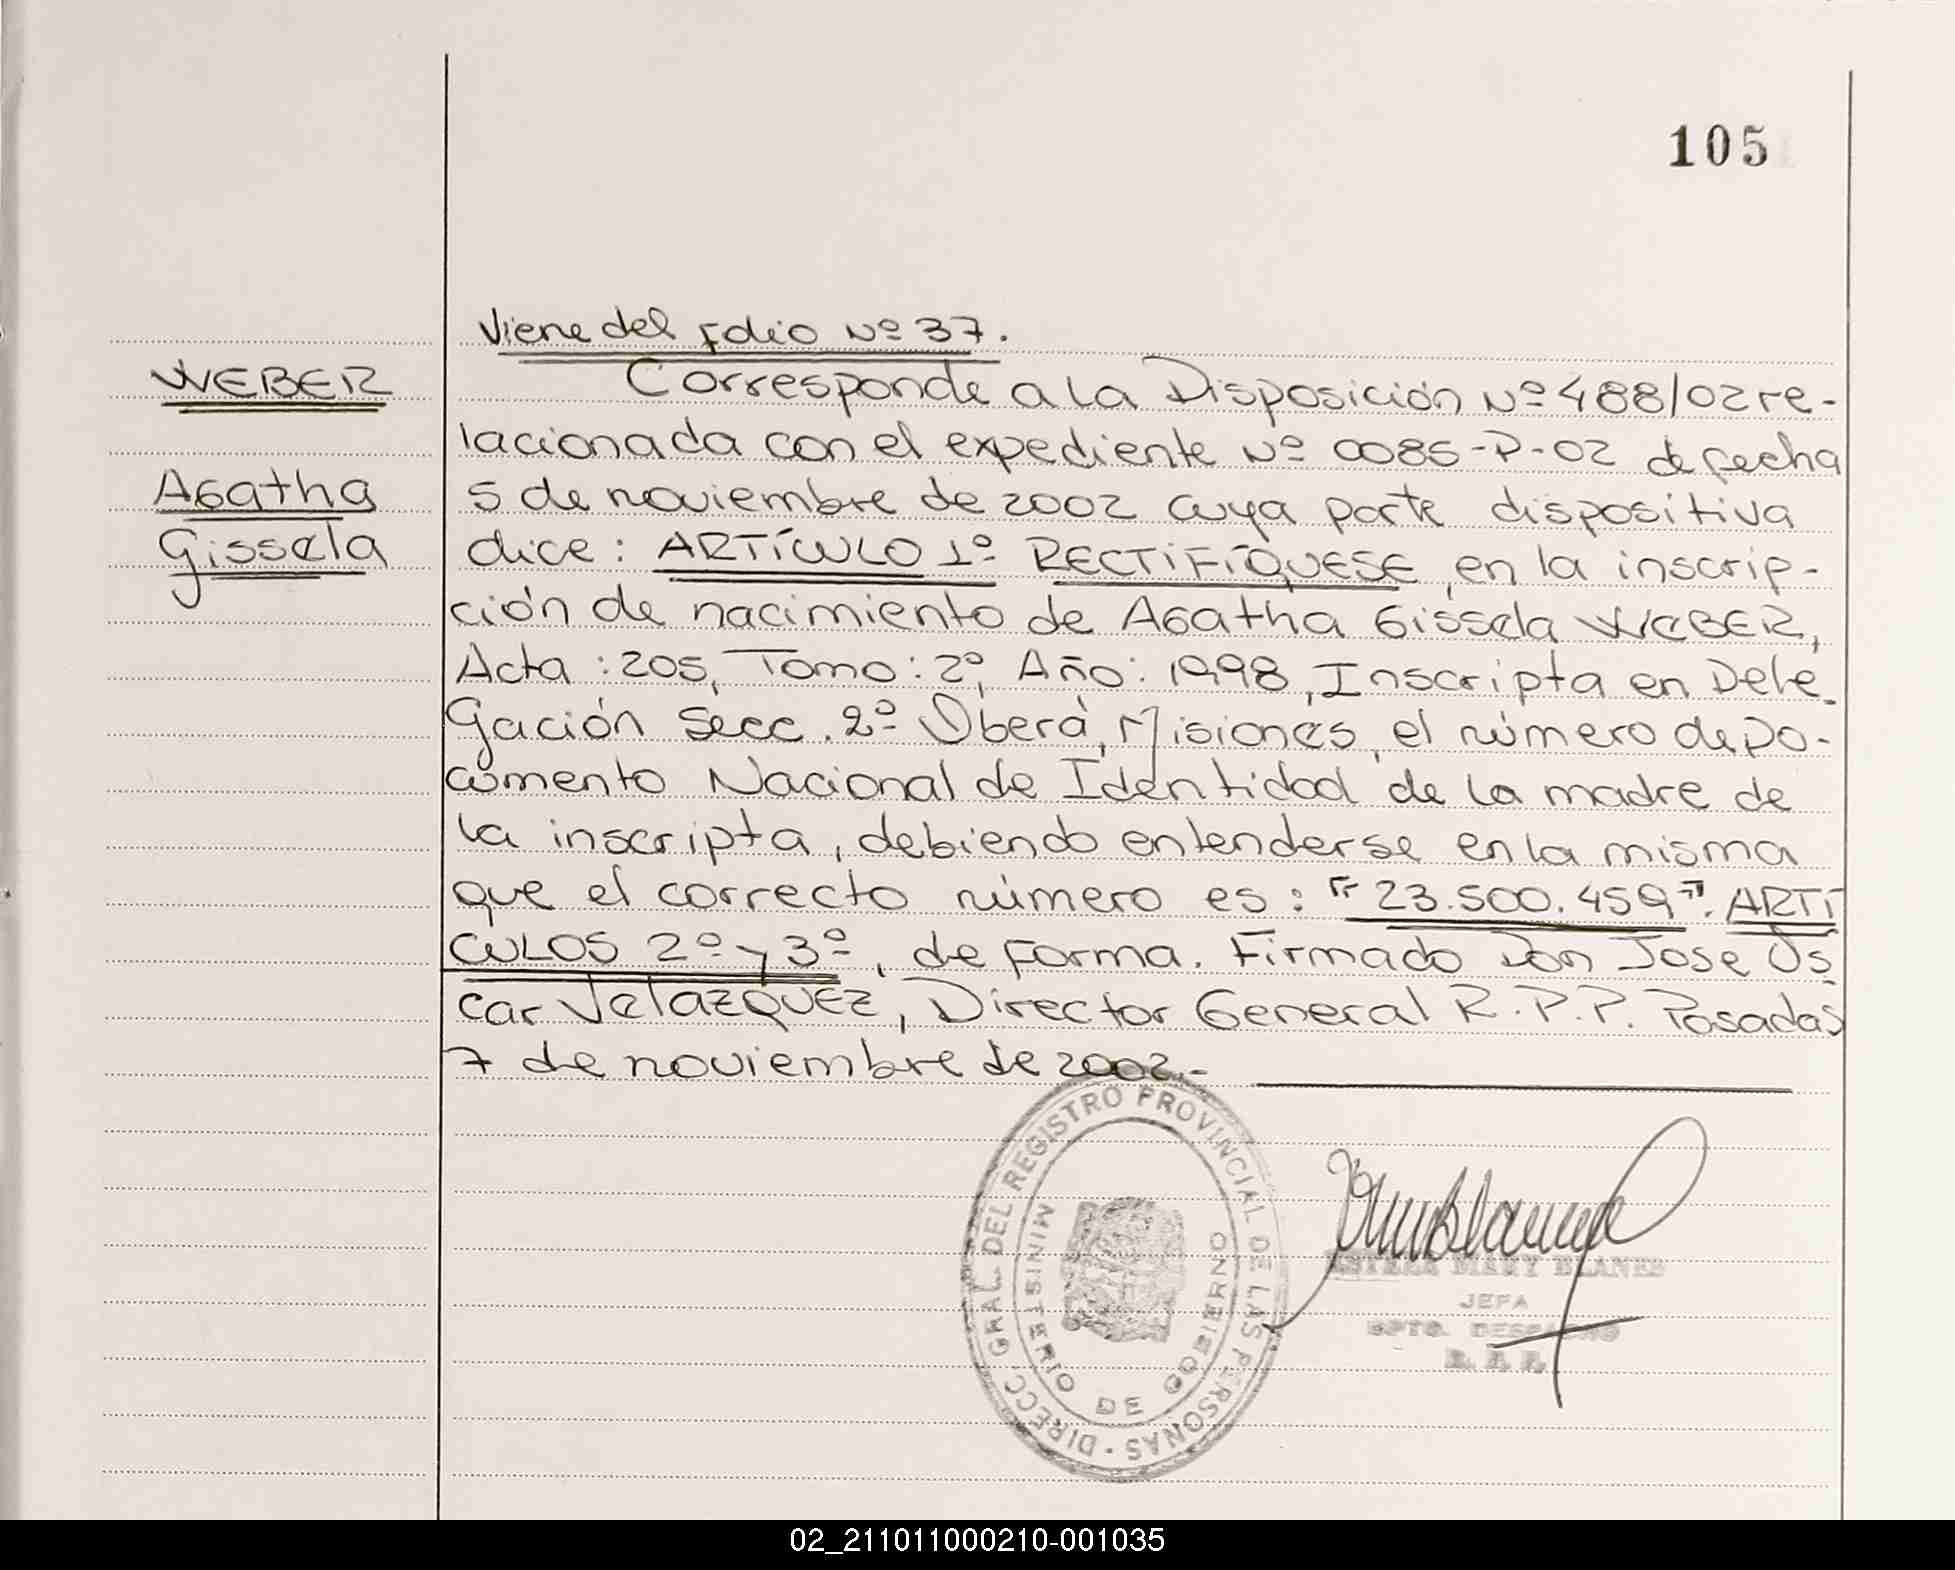 105
Viene del folio Nº 37.
WEBER
Agatha
Gissela
Corresponde a la Disposición Nº 488/02 re-
lacionada con el expediente Nº 0086-P-02 de fecha
5 de noviembre de 2002 cuya parte dispositiva
dice: ARTÍCULO 1º RECTIFÍQUESE, en la inscrip-
ción de nacimiento de Agatha Gissela WEBER,
Acta: 205, Tomo: 2º, Año: 1998, Inscripta en Dele-
gación Secc. 2º Oberá, Misiones, el número de Do-
cumento Nacional de Identidad de la madre de
la inscripta, debiendo entenderse en la misma
que el correcto número es: "23.500.459". ARTÍ
CULOS 2º y 3º, de forma. Firmado Don Jose Os-
car VelazQUEZ, Director General R.P.P. Posadas
7 de noviembre de 2002.-
DIRECC. GRAL. DEL REGISTRO PROVINCIAL DE LAS PERSONAS
MINISTERIO DE GOBIERNO
MARY BLANES
JEFA
DPTO. DESPACHO
R. P. P.
02_211011000210-001035